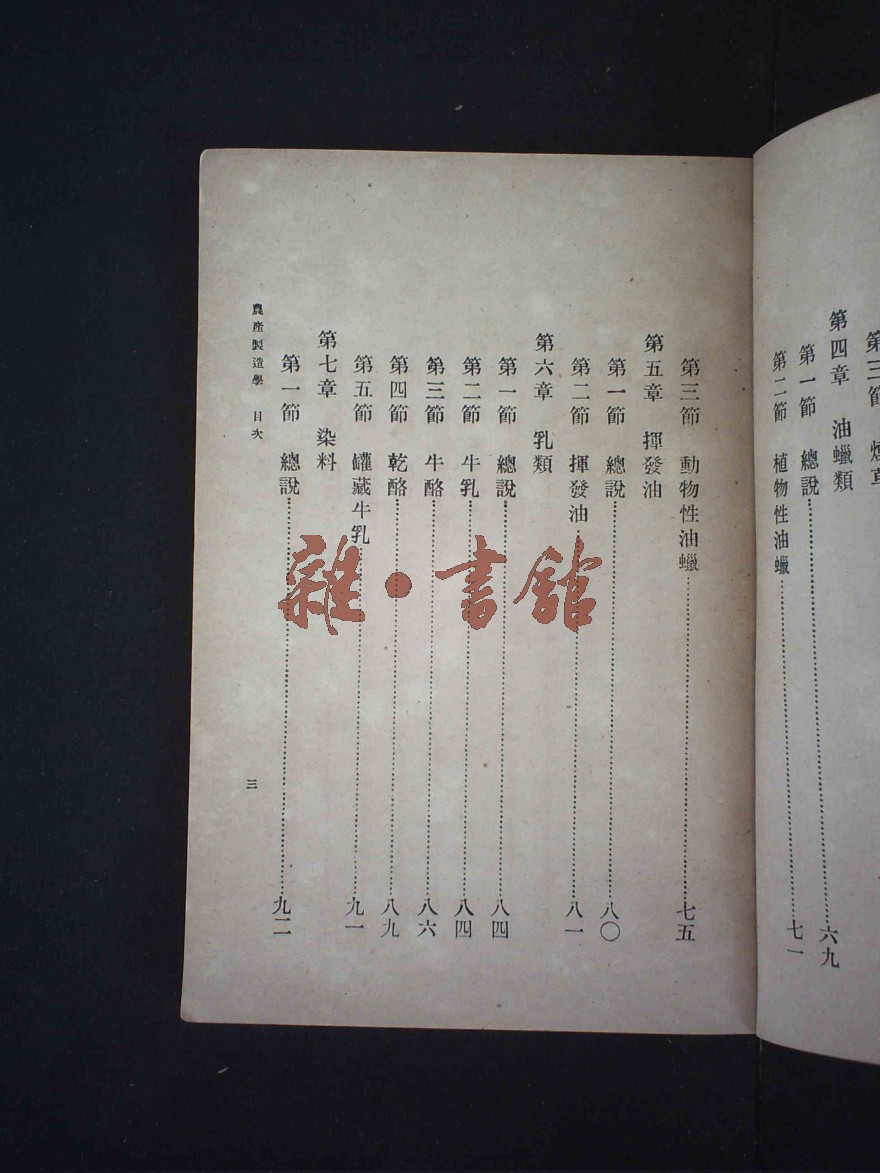 第三節
第四章　油蠟類
第一節　總說……六九
第二節　植物性油蠟……七一
第三節　動物性油蠟……七五
第五章　揮發油
第一節　總說……八〇
第二節　揮發油……八一
第六章　乳類
第一節　總說……八四
第二節　牛乳……八四
第三節　牛酪……八六
第四節　乾酪……八九
第五節　罐藏牛乳……九一
第七章　染料
第一節　總說……九二
農產製造學　目次
三
雜·書館